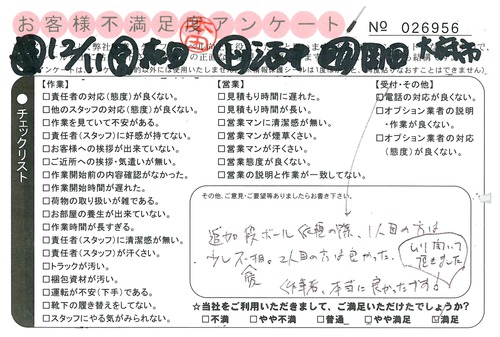 お客様不満足度アンケート
No 026956
12/11
大阪市
【作業】
□責任者の対応(態度)が良くない。
□他のスタッフの対応(態度)が良くない。
□作業を見ていて不安がある。
□責任者(スタッフ)に好感が持てない。
□お客様への挨拶が出来ていない。
□ご近所への挨拶・気遣いが無い。
□作業開始前の内容確認がなかった。
□作業開始時間が遅れた。
□荷物の取り扱いが雑である。
□お部屋の養生が出来ていない。
□作業時間が長すぎる。
□責任者(スタッフ)に清潔感が無い。
□責任者(スタッフ)が汗くさい。
□トラックが汚い。
□梱包資材が汚い。
□運転が不安(下手)である。
□靴下の履き替えをしてない。
□スタッフにやる気がみられない。
【営業】
□見積もり時間に遅れた。
□見積もり時間が長い。
□営業マンに清潔感が無い。
□営業マンが煙草くさい。
□営業マンが汗くさい。
□営業態度が良くない。
□営業の説明と作業が一致してない。
【受付・その他】
□電話の対応が良くない。
□オプション業者の説明
・作業が良くない。
□オプション業者の対応
(態度)が良くない。
チェックリスト
その他、ご意見・ご要望等ありましたらお書き下さい。
追加 段ボール 依頼の際、1人目の方は
少し不愉快。2人目の方は良かった。
作業者、本当に良かったです!
☆当社をご利用いただきまして、ご満足いただけたでしょうか?
□不満 □やや不満 □普通 □やや満足 □満足